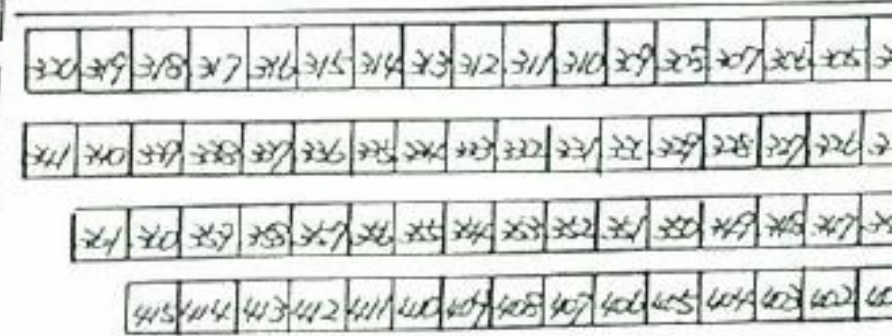 320 319 318 317 316 315 314 313 312 311 310 309 308 307 306 305
341 340 339 338 337 336 335 334 333 332 331 330 329 328 327 326
361 360 359 358 357 356 355 354 353 352 351 350 349 348 347
415 414 413 412 411 410 409 408 407 406 405 404 403 402